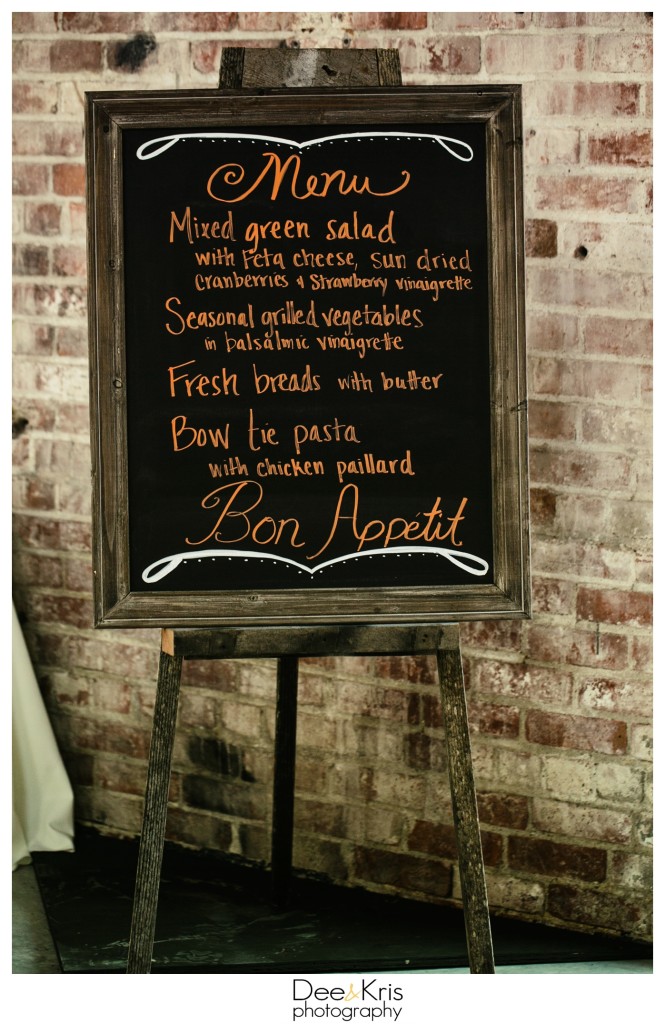 Menu
Mixed green salad
with Feta cheese, sun dried
Cranberries & Strawberry vinaigrette
Seasonal grilled vegetables
in balsalmic vinaigrette
Fresh breads with butter
Bow tie pasta
with chicken paillard
Bon Appétit
Dee&Kris
photography